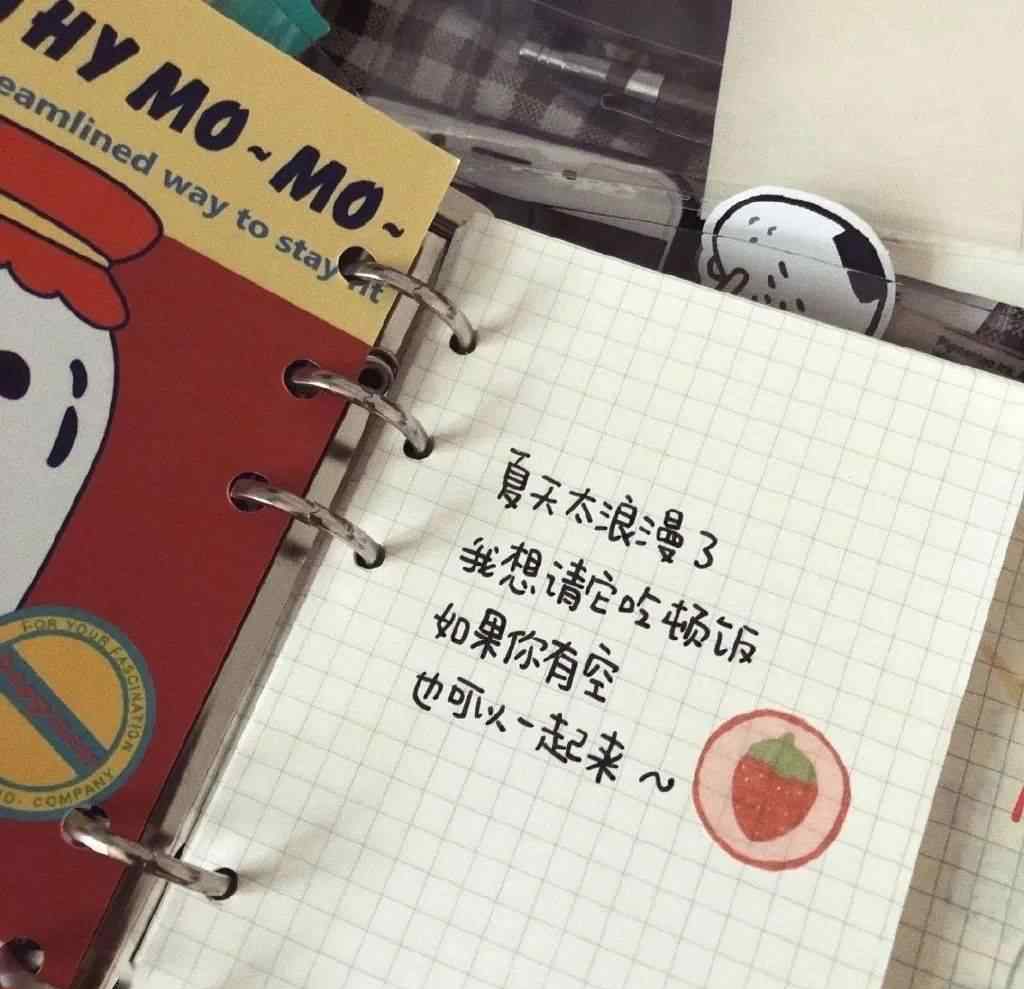 HY MO~MO~
eamlined way to stay fit
FOR YOUR FASCINATION
COMPANY
夏天太浪漫了
我想请它吃顿饭
如果你有空
也可以一起来~